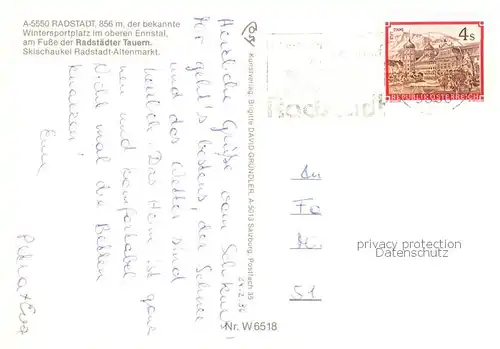 A-5550 RADSTADT, 856 m, der bekannte
Wintersportplatz im oberen Ennstal,
am Fuße der Radstädter Tauern.
Skischaukel Radstadt-Altenmarkt.
Herzliche Grüße vom Schikurs!
Mir geht's bestens, der Schnee
und das Wetter sind
herrlich. Das Heim ist ganz
neu und comfortabel
Nicht mal die Betten
knarren!
Eure
Petra + Eva
24.2.86
Kunstverlag Brigitte DAVID GRÜNDLER, A-5013 Salzburg, Postfach 35
Nr. W 6518
Radstadt
4 S
REPUBLIK ÖSTERREICH
An
Fa
51
privacy protection
Datenschutz